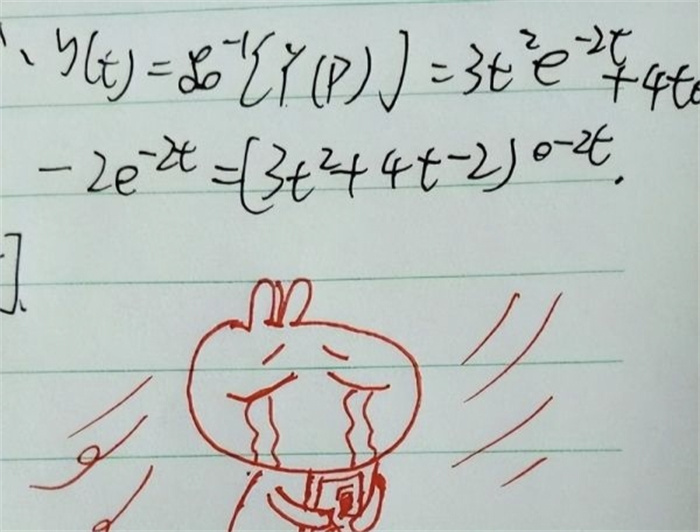 、y(t)=ℒ⁻¹[Y(P)]=3t²e^{-2t}+4te
-2e^{-2t}=(3t²+4t-2)e^{-2t}.
].